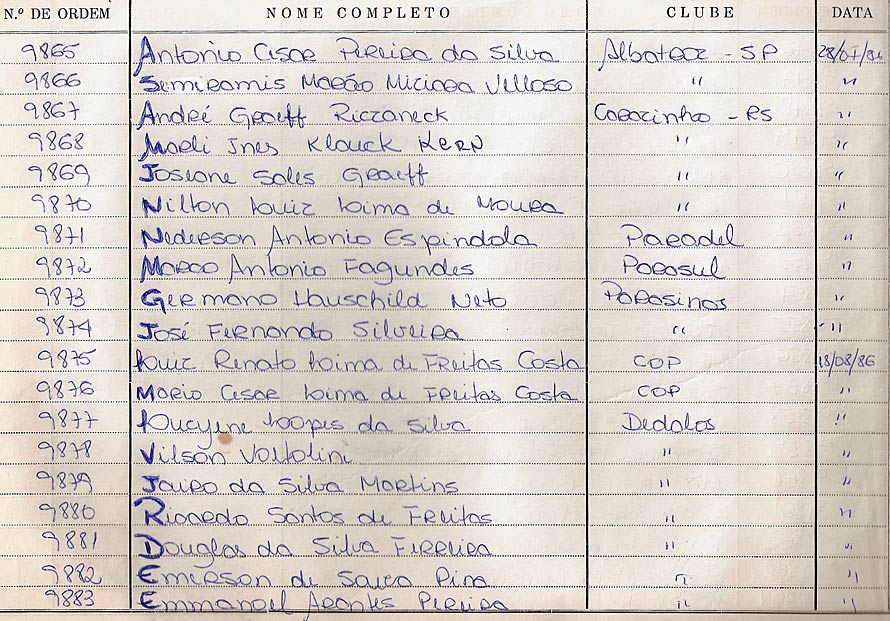 N.º DE ORDEM NOME COMPLETO CLUBE DATA
9865 Antonio Cesar Pereira da Silva Albatroz - SP 28/07/86
9866 Semiramis Marão Miciara Velloso " "
9867 André Graeff Riczaneck Carazinho - RS "
9868 Marli Ines Klauck Kern " "
9869 Josiane Sales Graeff " "
9870 Nilton Luiz Lima de Moura " "
9871 Nederson Antonio Espindola Paradel "
9872 Marco Antonio Fagundes Parasul "
9873 Germano Hauschild Neto Parasinos "
9874 José Fernando Silveira " "
9875 Luiz Renato Lima de Freitas Costa COP 18/08/86
9876 Mario Cesar Lima de Freitas Costa COP "
9877 Lucyene Lopes da Silva Dedalos "
9878 Vilson Voltolini " "
9879 Jairo da Silva Martins " "
9880 Ricardo Santos de Freitas " "
9881 Douglas da Silva Ferreira " "
9882 Emerson de Pina " "
9883 Emmanoel Arantes Pereira " "